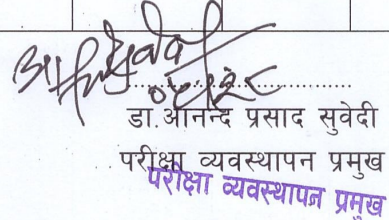 डा.आनन्द प्रसाद सुवेदी
परीक्षा व्यवस्थापन प्रमुख
परीक्षा व्यवस्थापन प्रमुख